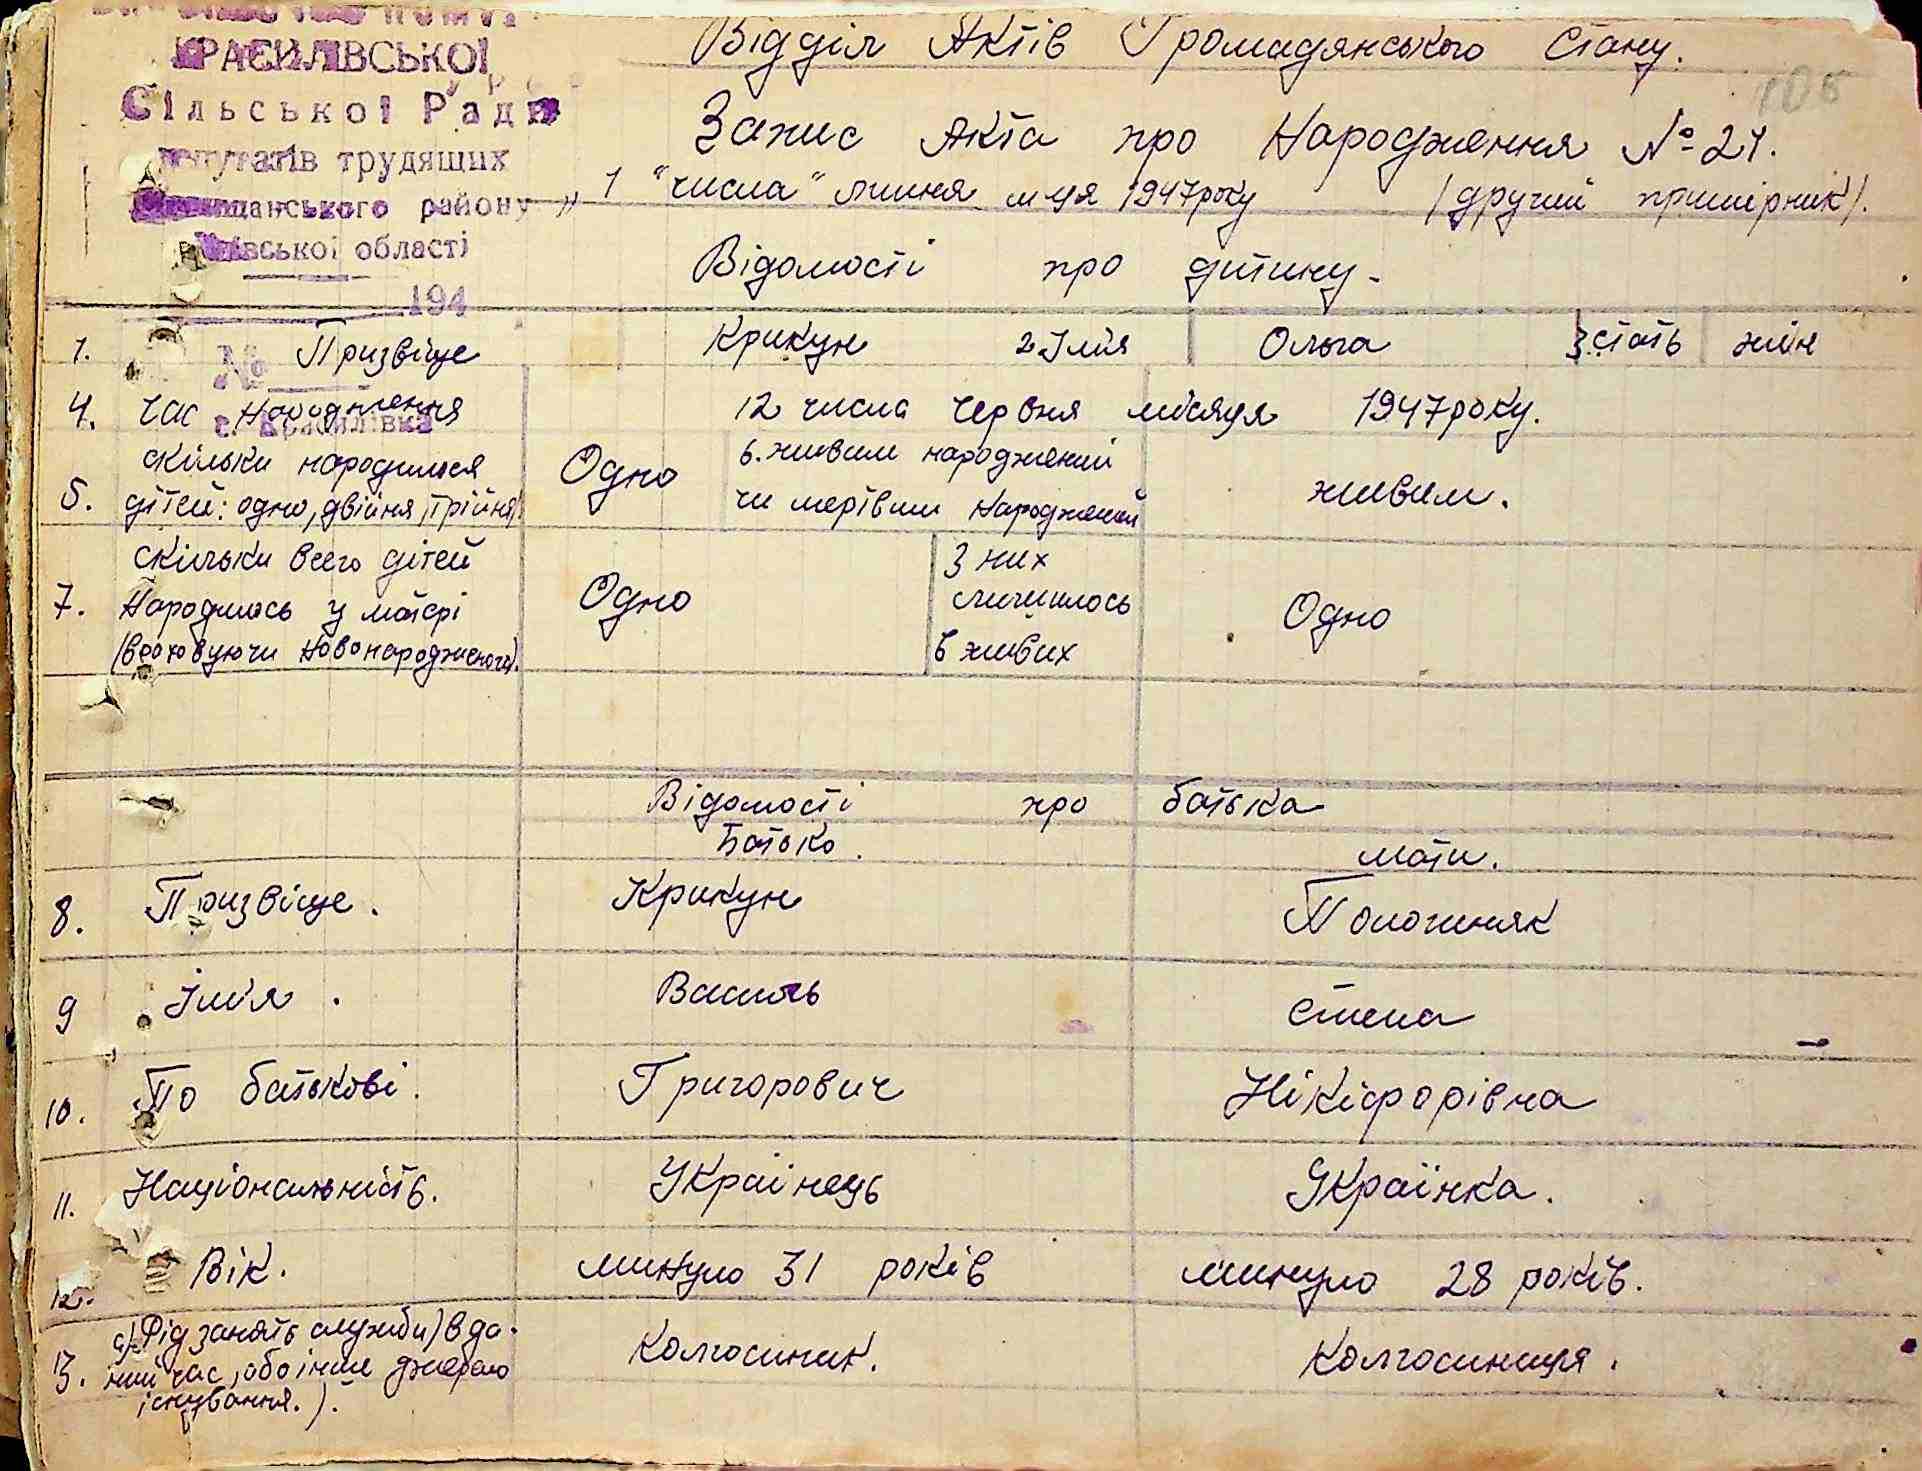 КРАСИЛІВСЬКОЇ
Сільської Ради
депутатів трудящих
району
області
194
№
с. Красилівка
Відділ Актів Громадянського Стану.
105
Запис Акта про Народження № 21.
"1" числа липня м-ця 1947 року (другий примірник).
Відомості про дитину.
1. Призвіще Крикун 2 Імя Ольга 3 стать жін
4. Час народження 12 числа червня місяця 1947 року.
5. скільки народилося дітей: одно, двійня, трійня Одно 6. живим народжений чи мертвим народжений живим.
7. скільки всего дітей Народилось у матері (враховуючи новонародженого). Одно З них лишилось в живих Одно
Відомості про батька
Батько. мати.
8. Призвіще. Крикун
9 Імя. Василь
10. По батькові. Григорович Нікіфорівна
11. Національність. Українець Українка.
12. Вік. минуло 31 років минуло 28 років.
13. а) Рід занять служби) в да-
ний час, або інше джерело
існування.). Колгоспник. Колгоспниця.